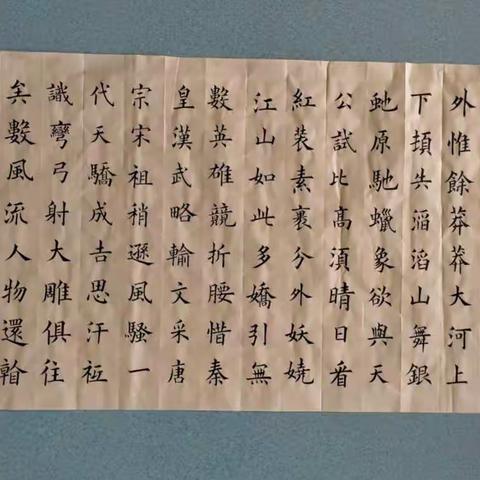 外惟餘莽莽大河上
下頓失滔滔山舞銀
虵原馳蠟象欲與天
公試比髙須晴日看
紅裝素裹分外妖嬈
江山如此多嬌引無
數英雄競折腰惜秦
皇漢武略輸文采唐
宗宋祖稍遜風騷一
代天驕成吉思汗祗
識彎弓射大雕俱往
矣數風流人物還